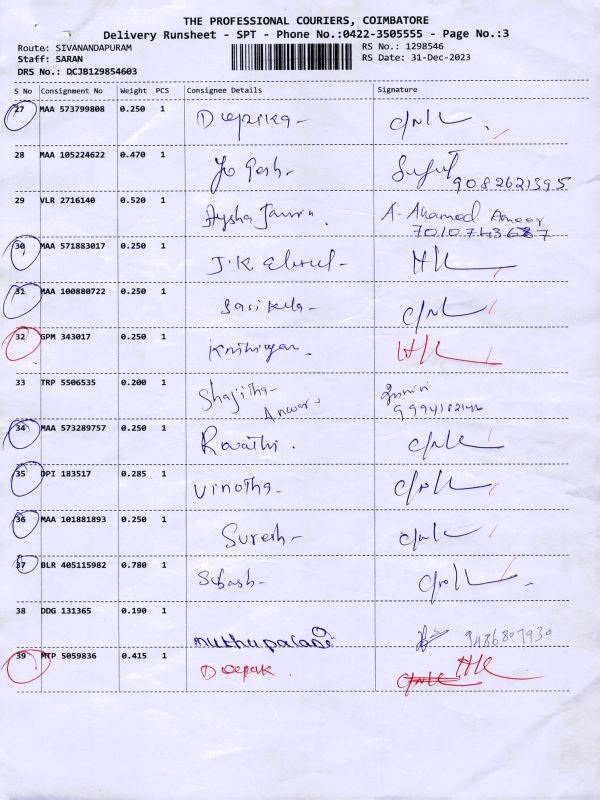 THE PROFESSIONAL COURIERS, COIMBATORE
Delivery Runsheet - SPT - Phone No.:0422-3505555 - Page No.:3
Route: SIVANANDAPURAM RS No.: 1298546
Staff: SARAN RS Date: 31-Dec-2023
DRS No.: DCJB129854603
S No Consignment No Weight PCS Consignee Details Signature
27 MAA 573799808 0.250 1 Deepika
28 MAA 105224622 0.470 1 Yo Gesh
9082621395
29 VLR 2716140 0.520 1 Aysha A. Ahamed
30 MAA 571883017 0.250 1 J.K H/L
31 MAA 100880722 0.250 1 Sasi Kala
32 GPM 343017 0.250 1 H/L
33 TRP 5506535 0.200 1 Shajitha
Anwar
34 MAA 573289757 0.250 1 Revathi.
35 DPI 183517 0.285 1 Vinotha
36 MAA 101881893 0.250 1 Suresh
37 BLR 405115982 0.780 1 Subash
38 DDG 131365 0.190 1
muthupalani 9486807930
39 MTP 5059836 0.415 1 Deepak. H/L